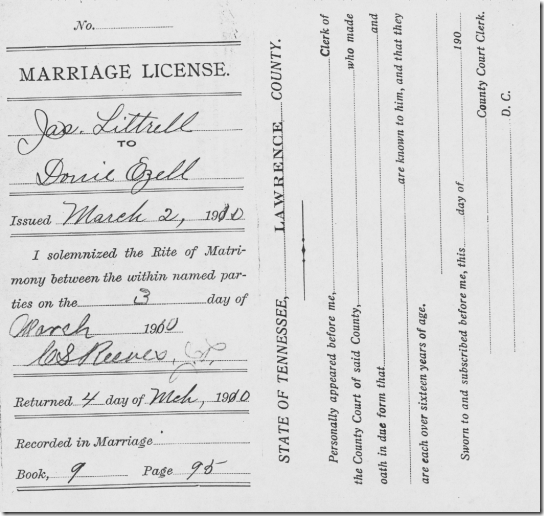 No.
MARRIAGE LICENSE.
Jas. Littrell
TO
Donie Ezell
Issued March 2, 1910
I solemnized the Rite of Matri-
mony between the within named par-
ties on the 3 day of
March 1910
C S Reeves, J.P.
Returned 4 day of Mch, 1910
Recorded in Marriage
Book, 9 Page 95
STATE OF TENNESSEE, LAWRENCE COUNTY.
Personally appeared before me, Clerk of
the County Court of said County, who made
oath in due form that and
are known to him, and that they
are each over sixteen years of age.
Sworn to and subscribed before me, this day of 190
County Court Clerk.
D. C.